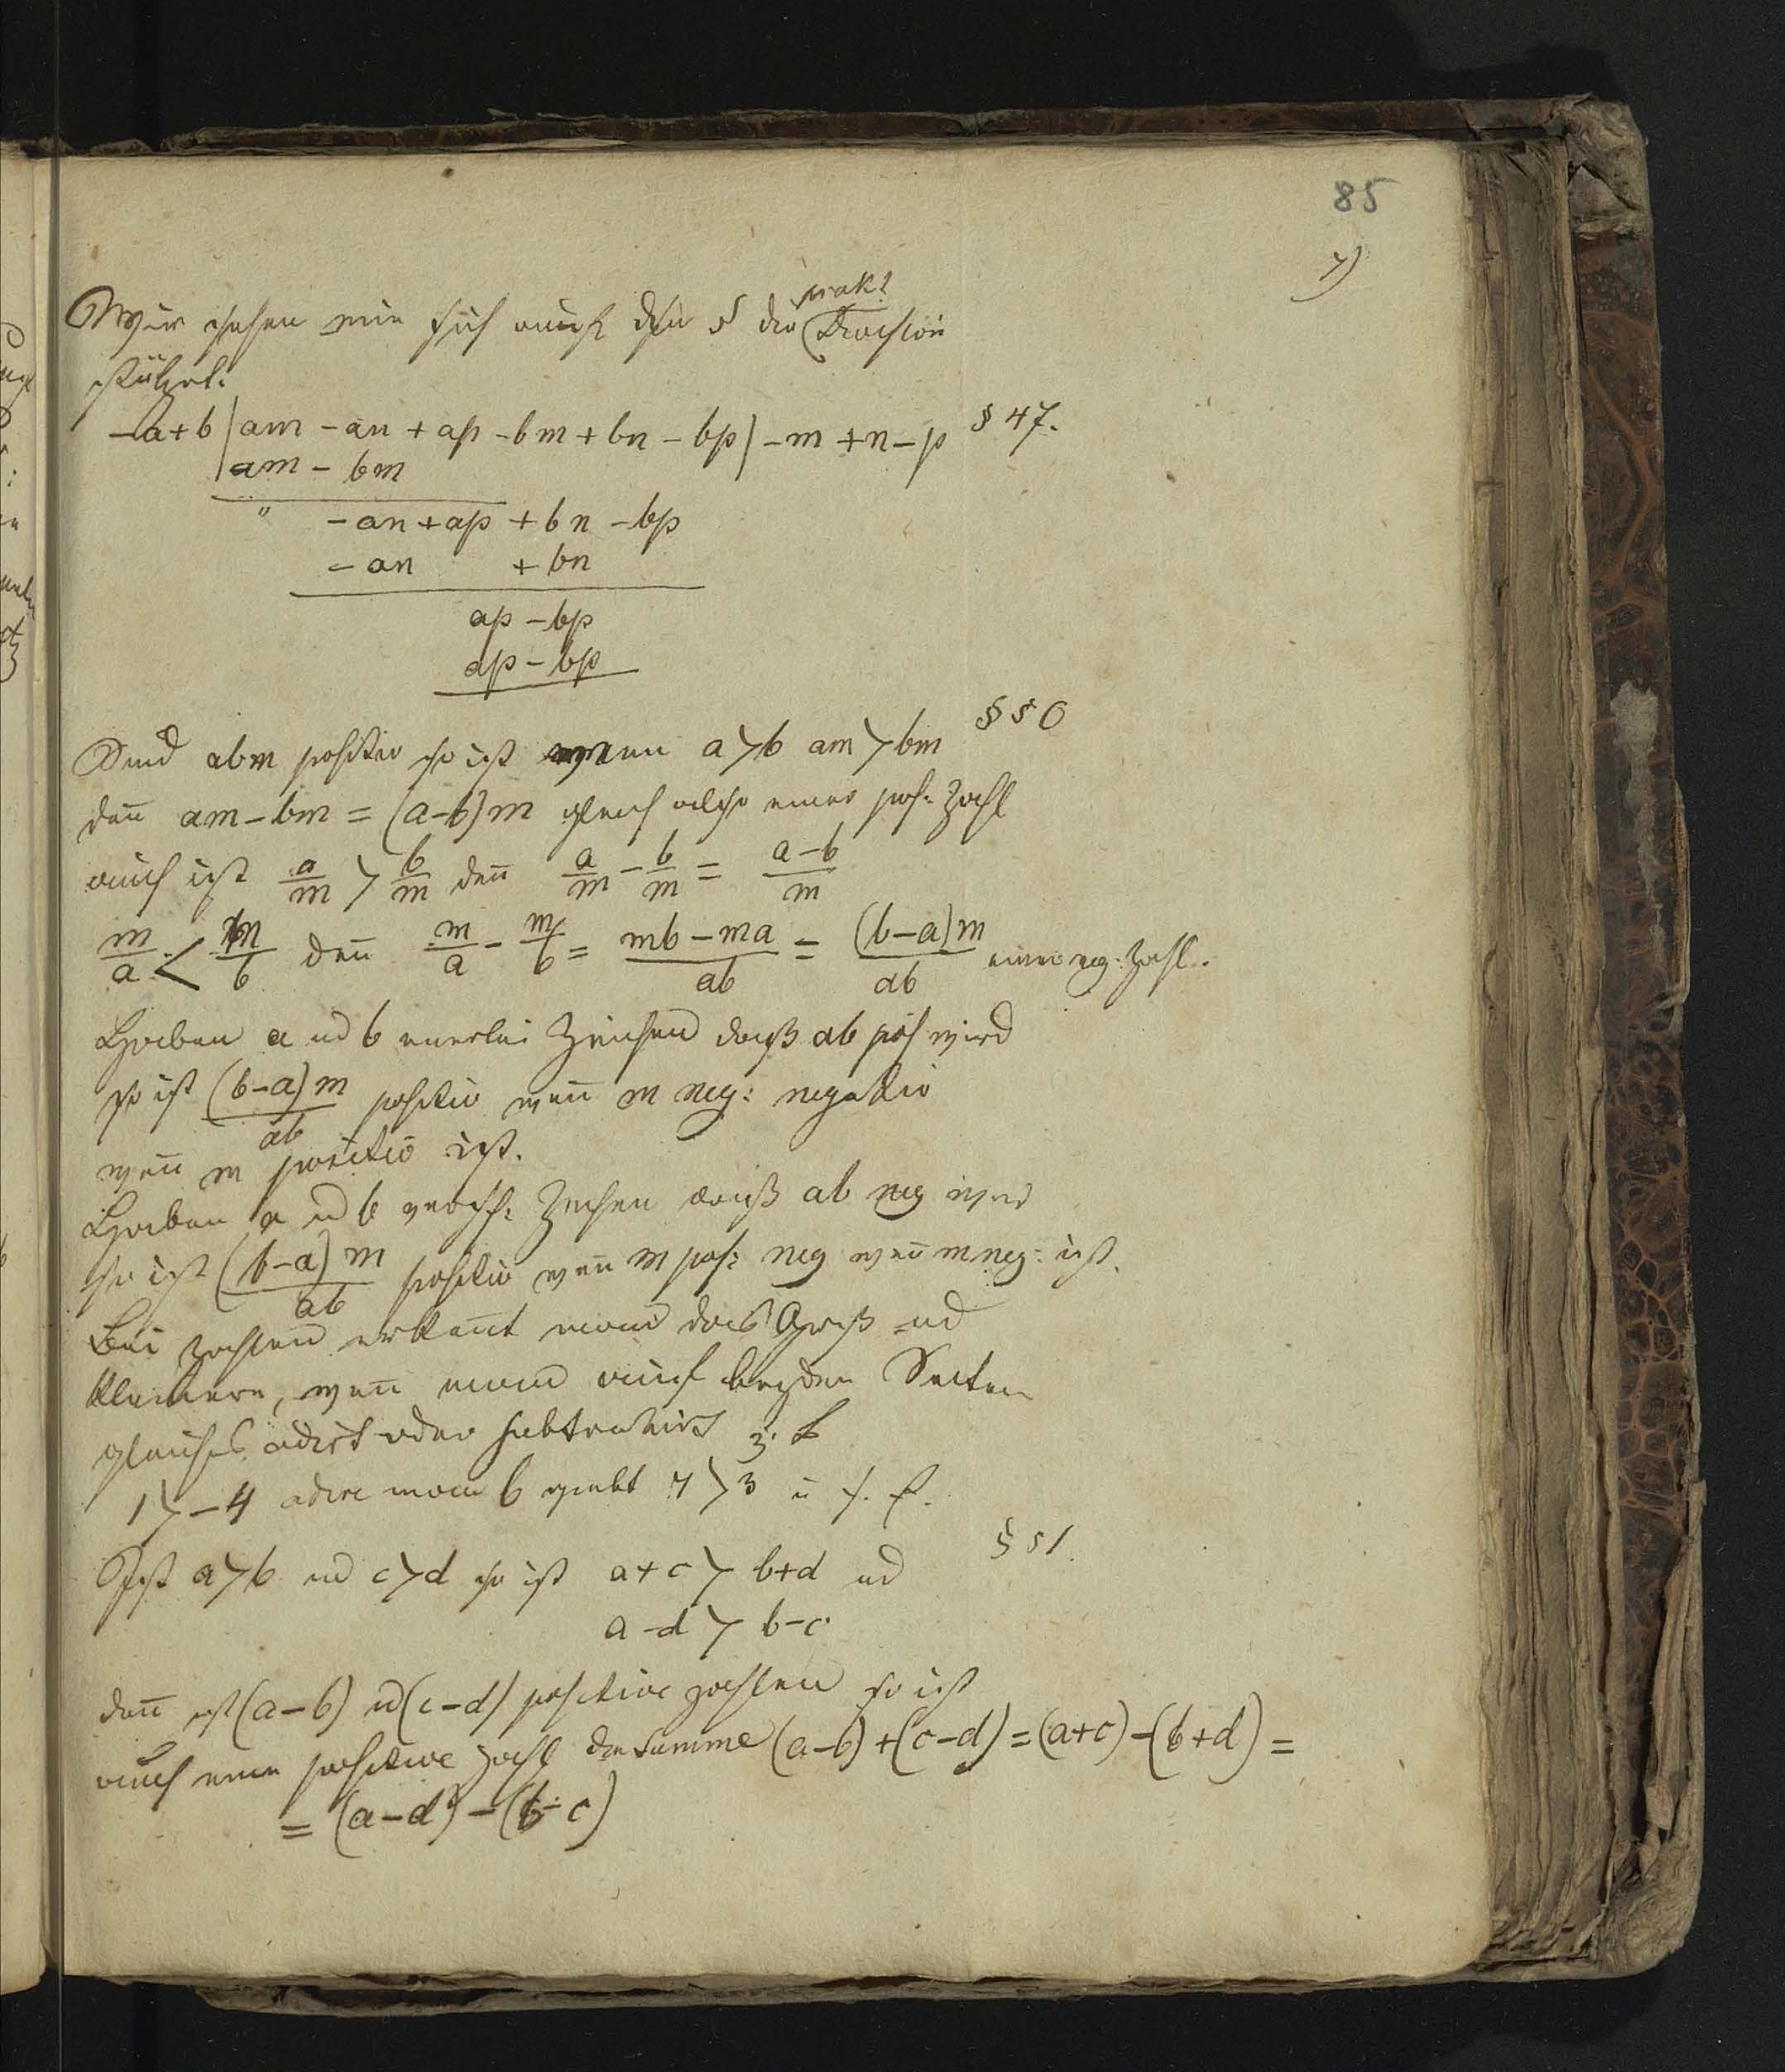 85
7)
prakt
Wir sehen wie sich auf den § die Division
stützet.
-a+b | am - an + ap - bm + bn - bp | - m + n - p § 47.
am - bm
" - an + ap + bn - bp
- an + bn
ap - bp
ap - bp
§ 50
Sind abm positiv so ist wenn a > b am > bm
den̄ am - bm = (a-b)m gleich also einer pos: Zahl
auch ist a/m > b/m den̄ a/m - b/m = (a-b)/m
m/a < m/b den̄ m/a - m/b = (mb - ma)/ab = (b-a)m/ab einer neg: Zahl.
Haben a ud b einerlei Zeichen daß ab pos wird
so ist (b-a)m/ab positiv wen̄ m neg: negativ
wen̄ m positiv ist.
Haben a ud b versch: Zeichen daß ab neg wird
so ist (b-a)m/ab positiv wen̄ m pos: neg wen̄ m neg: ist.
Bei Zahlen erken̄t man das Groß ud
kleinere, wen̄ man auf beyden Seiten
gleiches adirt oder subtrahirt z. B
1 > -4 adire man 6 giebt 7 > 3 u s. f.
§ 51.
Ist a > b ud c > d so ist a+c > b+d ud
a-d > b-c
den̄ ist (a-b) ud (c-d) positive Zahlen so ist
auch eine positive Zahl die Summe (a-b) + (c-d) = (a+c) - (b+d) =
= (a-d) - (b-c)